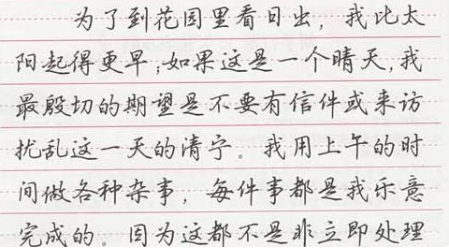 为了到花园里看日出，我比太
阳起得更早；如果这是一个晴天，我
最殷切的期望是不要有信件或来访
扰乱这一天的清宁。我用上午的时
间做各种杂事，每件事都是我乐意
完成的。因为这都不是非立即处理